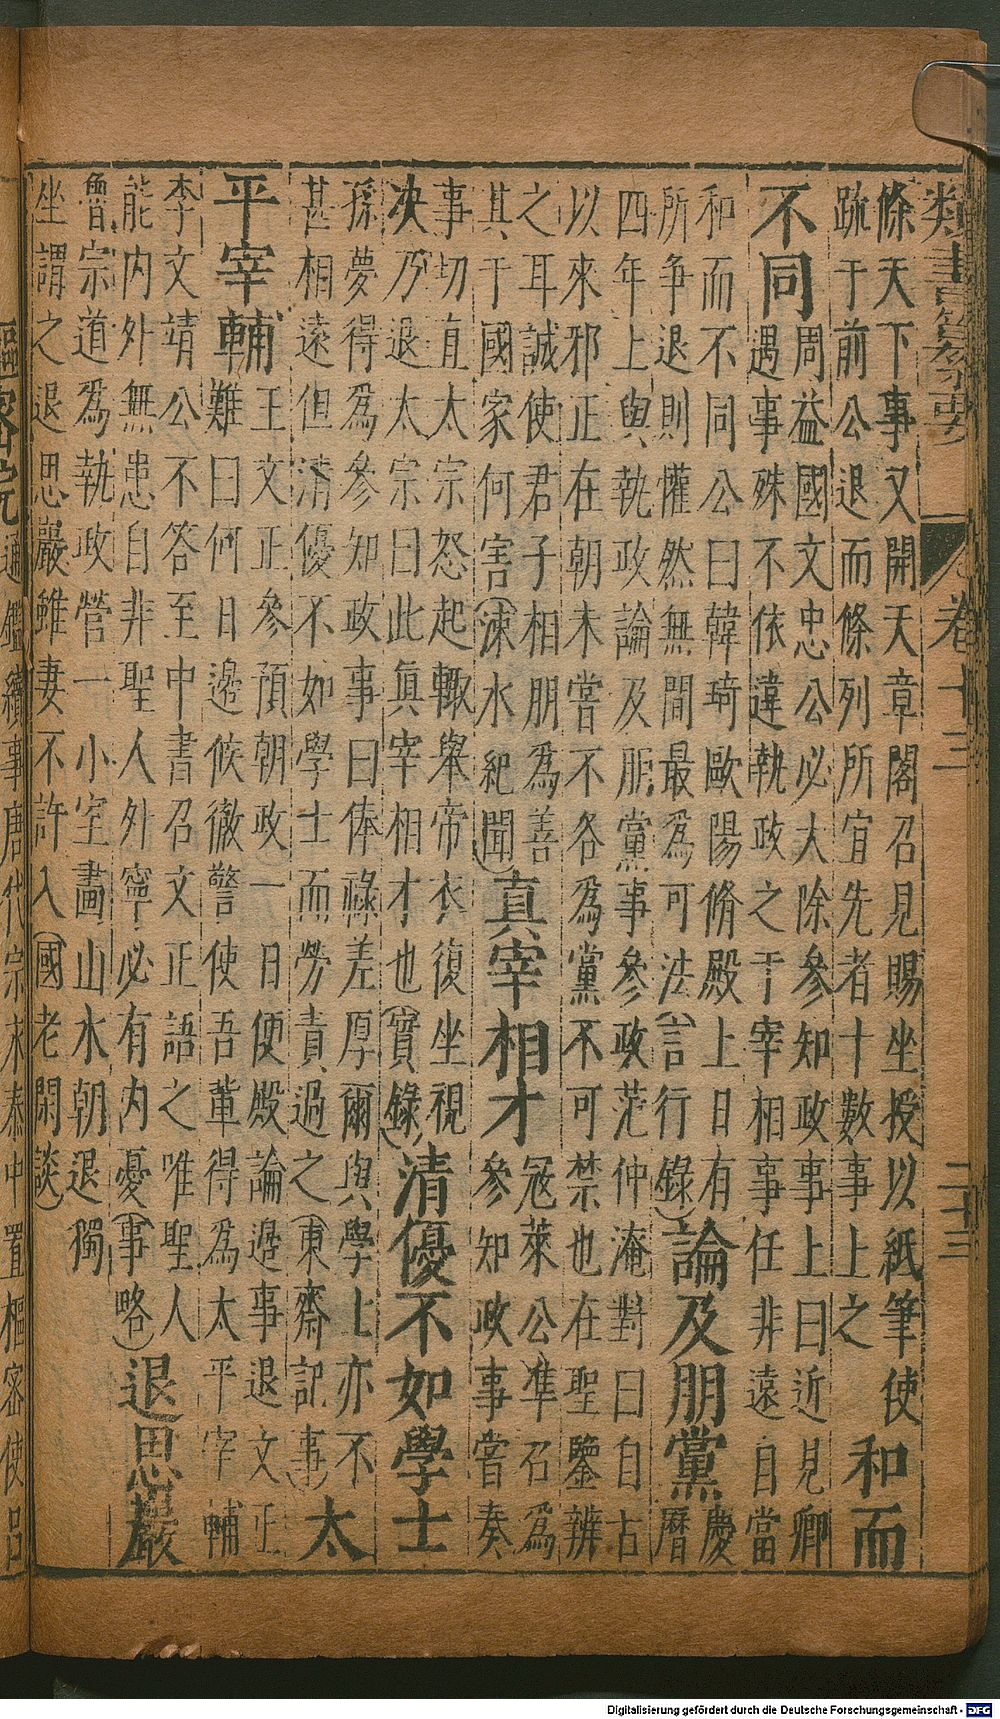 類書纂要 卷十三 二十三
條天下事又開天章閣召見賜坐授以紙筆使
䟽于前公退而條列所宜先者十數事上之
和而
不同
周益國文忠公必大除參知政事上曰近見卿
遇事殊不依違執政之于宰相事任非遠自當
和而不同公曰韓琦歐陽脩殿上日有
所爭退則懽然無間最爲可法(言行錄)
論及朋黨
慶
曆
四年上與執政論及朋黨事參政范仲淹對曰自古
以來邪正在朝未嘗不各爲黨不可禁也在聖鑒辨
之耳誠使君子相朋爲善
其于國家何害(涑水紀聞)
真宰相才
寇萊公準召爲
參知政事嘗奏
事切直太宗怒起輙舉帝衣復坐視
决乃退太宗曰此真宰相才也(實錄)
清優不如學士
孫夢得爲參知政事曰俸祿差厚爾與學士亦不
甚相遠但清優不如學士而勞責過之(東齋記事)
太
平宰輔
王文正參預朝政一日便殿論邊事退文正
難曰何日邊候徹警使吾輩得爲太平宰輔
李文靖公不答至中書召文正語之唯聖人
能内外無患自非聖人外寧必有内憂(事略)
退思巖
魯宗道爲執政營一小室畫山水朝退獨
坐謂之退思巖雖妻不許入(國老閑談)
樞密院
通鑑續事唐代宗永泰中置樞密使
Digitalisierung gefördert durch die Deutsche Forschungsgemeinschaft - DFG